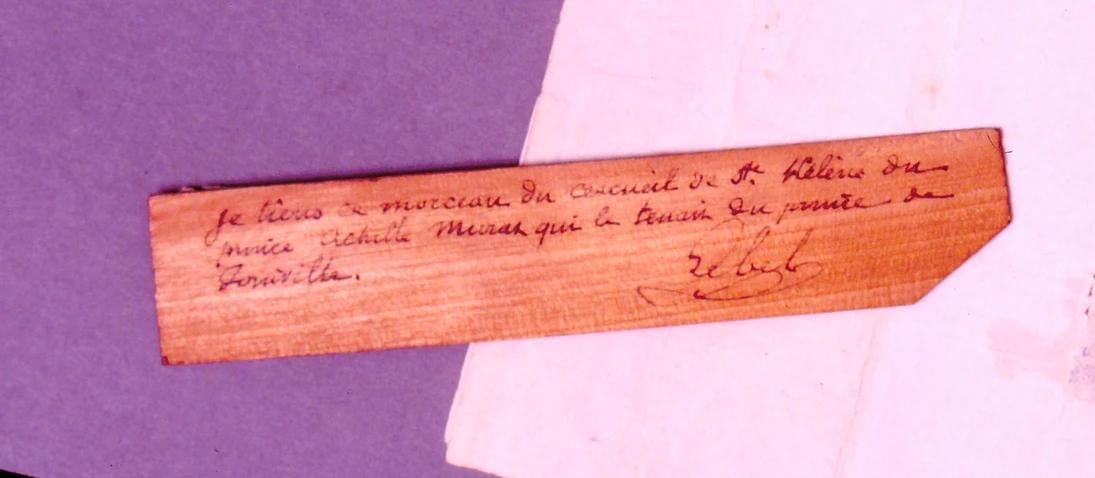 Je tiens ce morceau du cercueil de Ste Hélène du
prince Achille Murat qui le tenait du prince de
Joinville.
Lebel